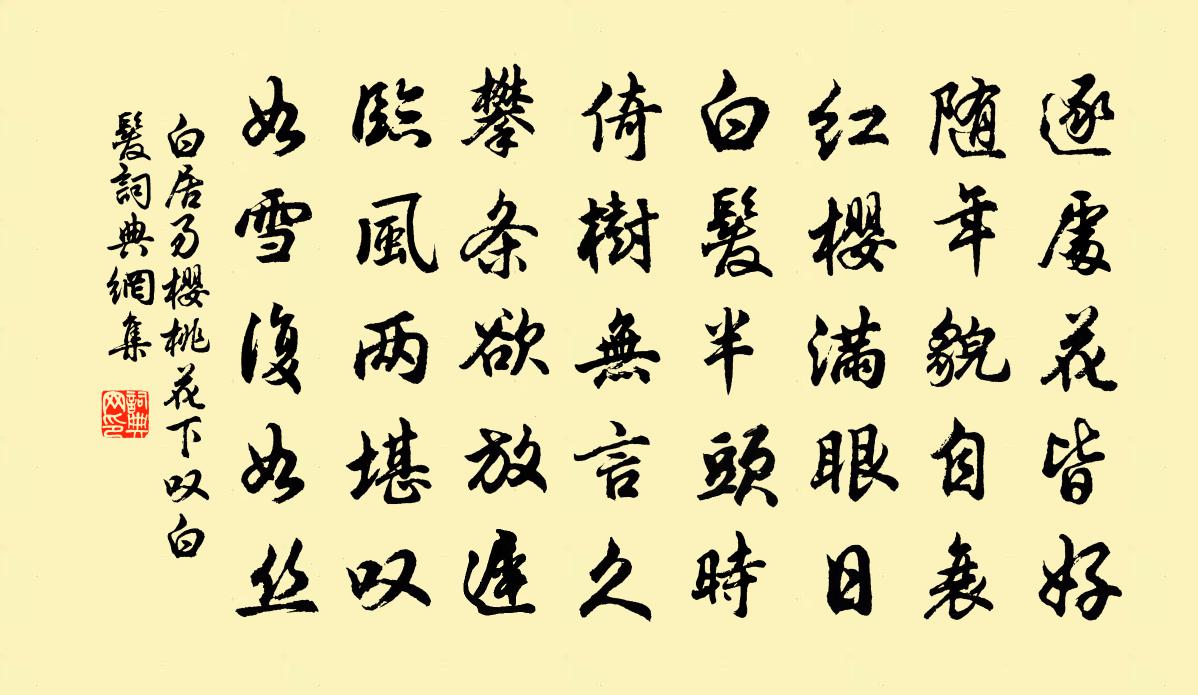 逐處花皆好
随年貌自衰
紅櫻满眼日
白髮半頭時
倚樹無言久
攀条欲放遲
臨風两堪叹
如雪復如丝
白居易櫻桃花下叹白
髮詞典網集
詞典
网印